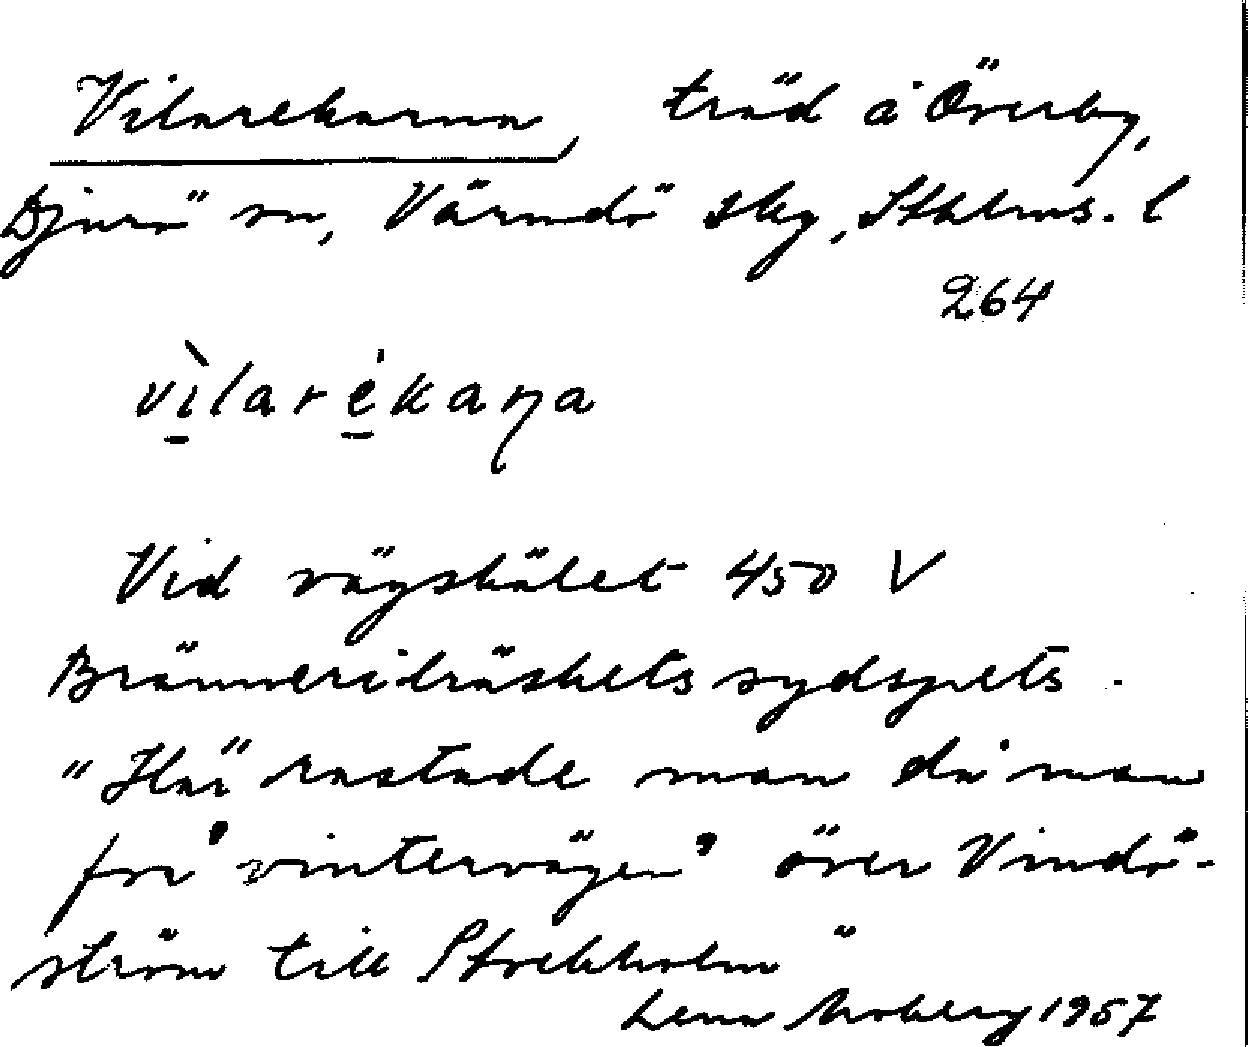 Vilarekarna, träd å Överby,
Djurö sn, Värmdö skg, Sthlms. l
264
vìlarékaṇa
Vid vägskälet 450 V
Bränneriträskets sydspets.
"Här rastade man då man
for 'vintervägen' över Vindö-
ström till Stockholm"
Lena Moberg 1957